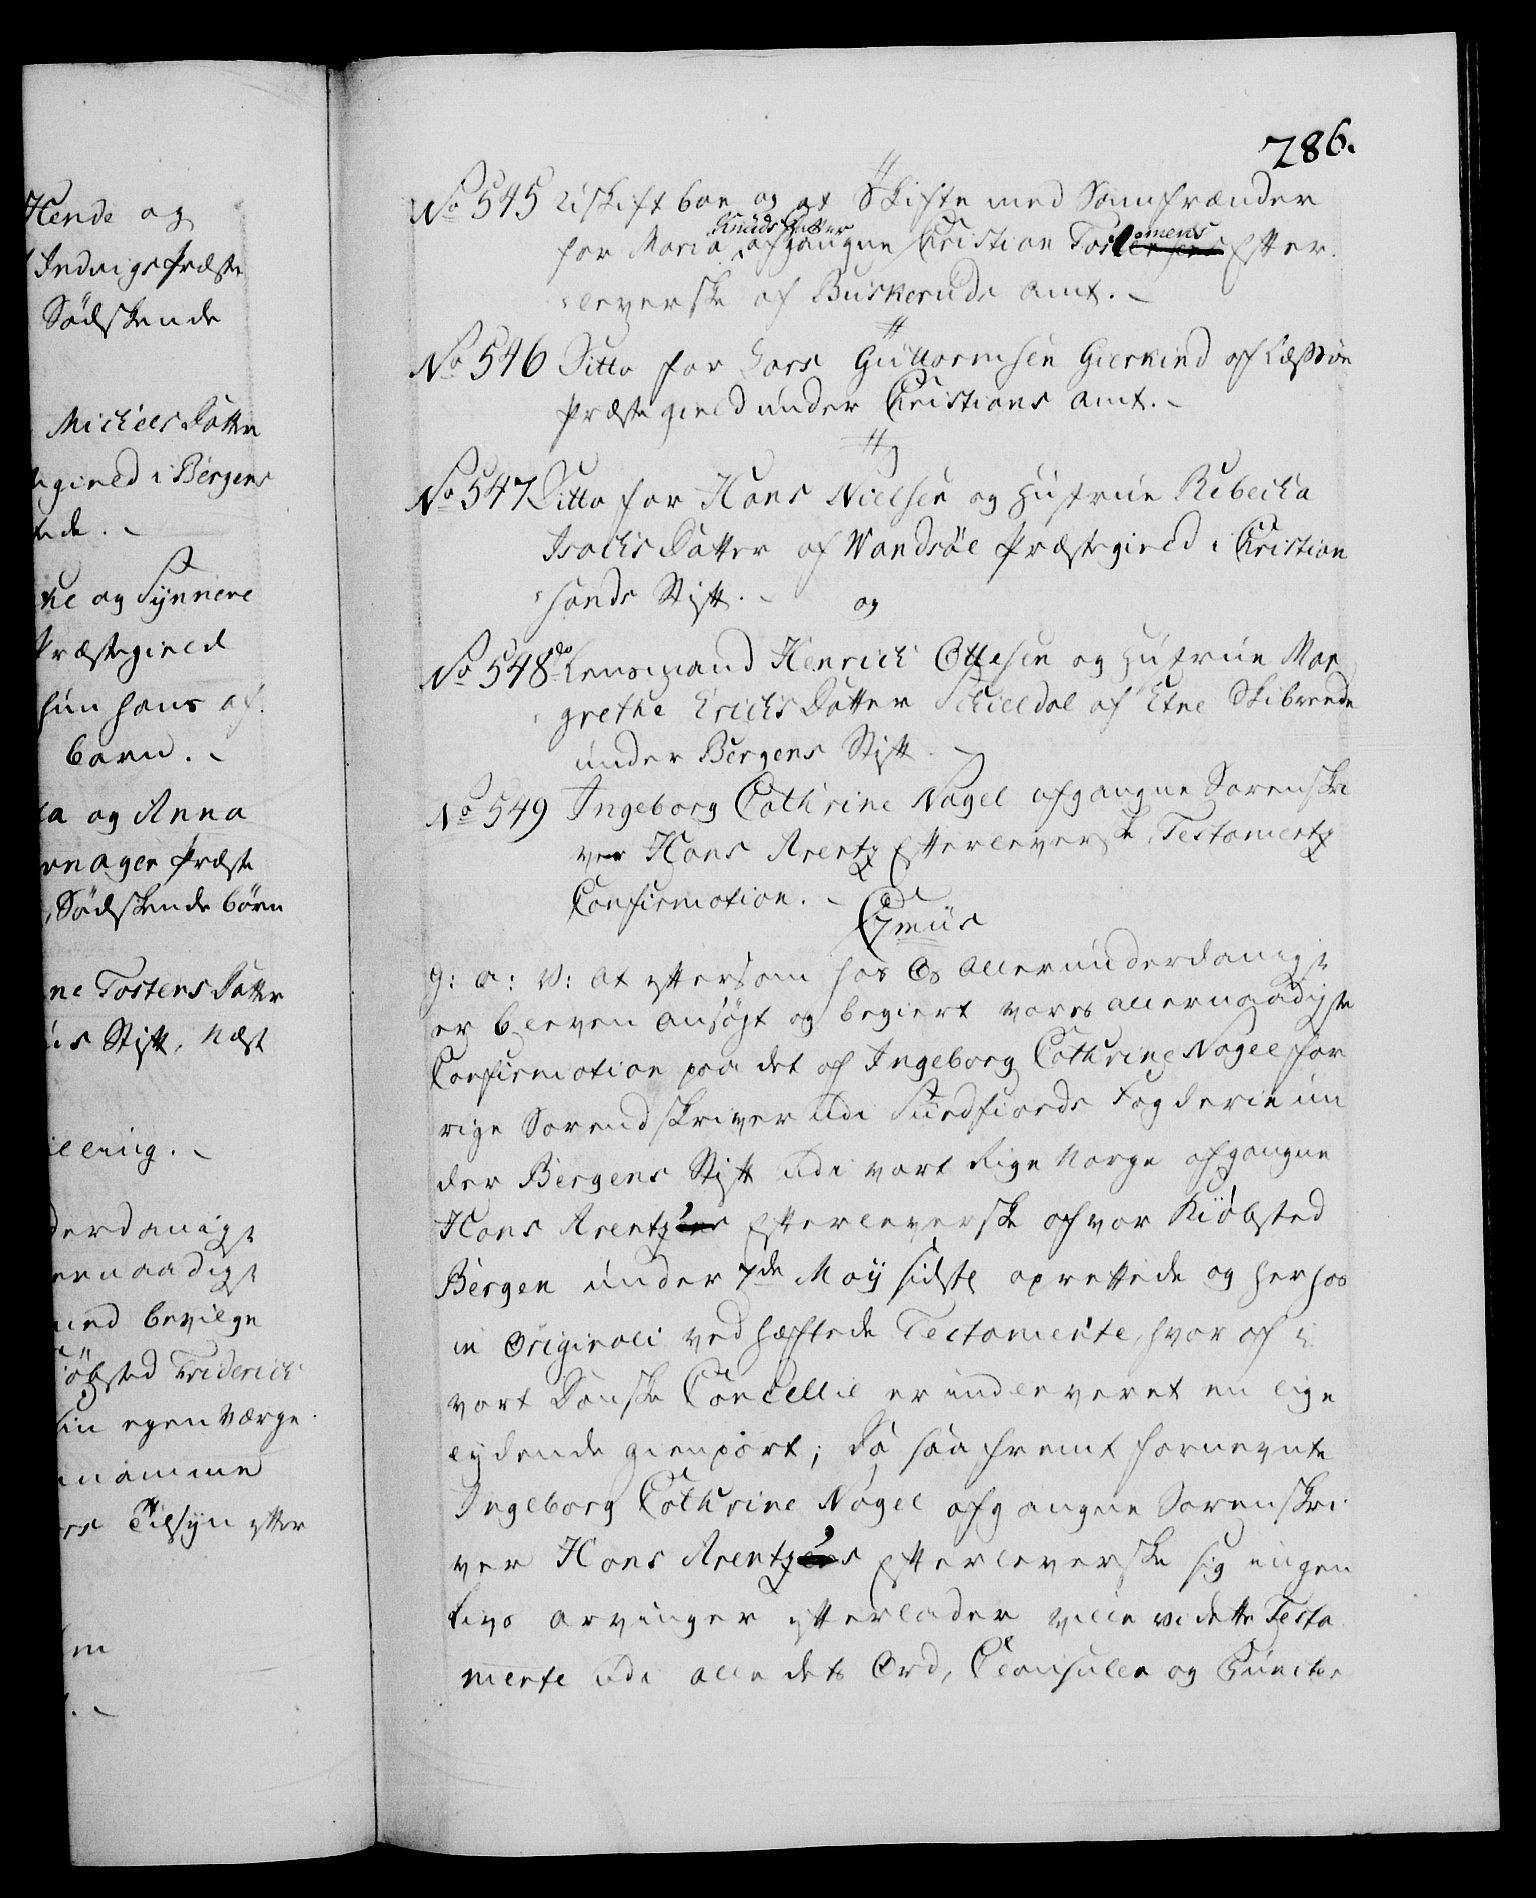 Hende og
Indvigs Præste
Sødskende
Michels Datter
gield i Bergens
og Synneve
Præstegield
hans af
barn.
og Anna
Præste
Sødskende börn
Tostens Datter
Stift, Næst
derdanigst
ernaadigst
med bevilge
Friderich
sin egen Værge
Tilsyn efter
286.
No 545 Uskift boe og at Skifte med Samfrænder
for Maria Knuds Datter afgangne Christian Tostomens Efter
leverske af Buskeruds Amt.
No 546 Ditto for Lars Guttormsen Gierkind af Læssøe
Præstegield under Christians Amt.
No 547 Ditto for Hans Nielsen og Hustrue Rebecha
Isachs Datter af Wandsöe Præstegield i Christian
sands Stift.
og
No 548 do Lensmand Henrich Ottesen og Hustrue Mar
grethe Erichs Datter Schieldal af Etne Skibrede
under Bergens Stift.
No 549 Ingeborg Cathrine Nagel afgangne Sorenskri
ver Hans Arentz Efterleverske, Testamentz
Confirmation.
G: a: V: at eftersom hos Os allerunderdanigst
er bleven ansögt og begiert vores allernaadigste
Confirmation paa det af Ingeborg Cathrine Nagel for
rige Sorendskriver udi Sundfiords Fogderie un
der Bergens Stift udi vort Rige Norge afgangne
Hans Arentzes Efterleverske af vor Kiöbsted
Bergen under 7de Maij sidste oprettede og herhos
in Originali ved hæftede Testamente, hvor af i
vort Danske Cancellie er indleveret en lige
lydende gienpart; Da saafremt fornevnte
Ingeborg Cathrine Nagel afgangne Sorenskri
ver Hans Arentzes Efterleverske sig ingen
livs arvinger efterlader ville vi dette Testa
mente udi alle dets Ord, Clausuler og Puncter